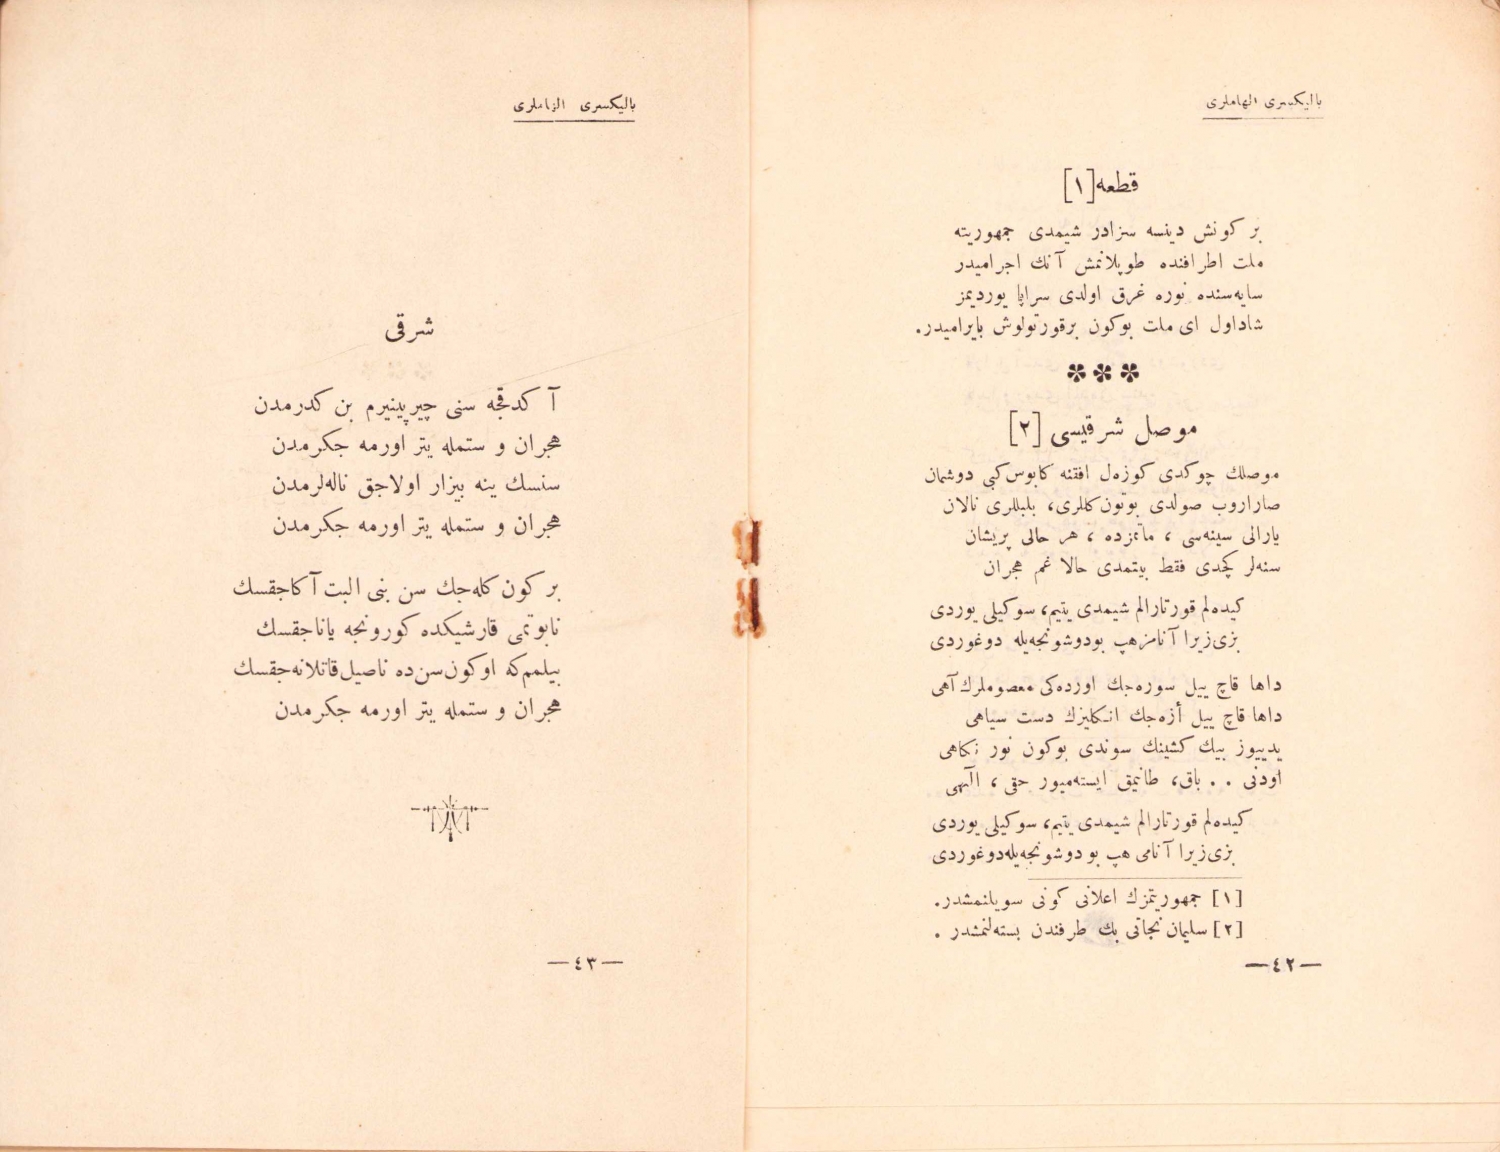 باليكسرى الهاملرى
قطعه [١]
بر كونش دينسه سزادر شيمدى جمهوريته
ملت اطرافنده طوپلانمش آنك اجراميدر
سايه‌سنده نوره غرق اولدى سراپا يورديمز
شاد اول اى ملت بوكون برقورتولوش بايراميدر.
موصل شرقيسى [٢]
موصلك چوكدى كوزه‌ل افقنه كابوس كبى دوشمان
صاراروب صولدى بوتون كللرى، بلبللرى نالان
يارالى سينه‌سى ، ماتمزده ، هر حالى پريشان
سنه‌لر كچدى فقط بيتمدى حالا غم هجران
كيده‌لم قورتارالم شيمدى يتيم، سوكيلى يوردى
بزى زيرا آنامز هپ بودوشونجه‌يله دوغوردى
داها قاچ ييل سوره‌جك اورده‌كى معصوملرك آهى
داها قاچ ييل أزه‌جك انكليزك دست سياهى
يدييوز بيك كشينك سوندى بوكون نور نكاهى
اودنى . . باق، طانيمق ايسته‌ميور حقى ، اآلهى
كيده‌لم قورتارالم شيمدى يتيم، سوكيلى يوردى
بزى زيرا آنامى هپ بو دوشونجه‌يله دوغوردى
[١] جمهوريتمزك اعلانى كونى سويلنمشدر.
[٢] سليمان نجاتى بك طرفندن بسته‌لنمشدر .
— ٤٢ —
باليكسرى الهاملرى
شرقى
آ كدقجه سنى چيرپينيرم بن كدرمدن
هجران و ستمله يتر اورمه جكرمدن
سنسك ينه بيزار اولاجق ناله‌لرمدن
هجران و ستمله يتر اورمه جكرمدن
بر كون كله‌جك سن بنى البت آكاجقسك
نابوتمى قارشيكده كورونجه ياناجقسك
بيلمم كه اوكون سن ده ناصيل قاتلانه‌جقسك
هجران و ستمله يتر اورمه جكرمدن
— ٤٣ —